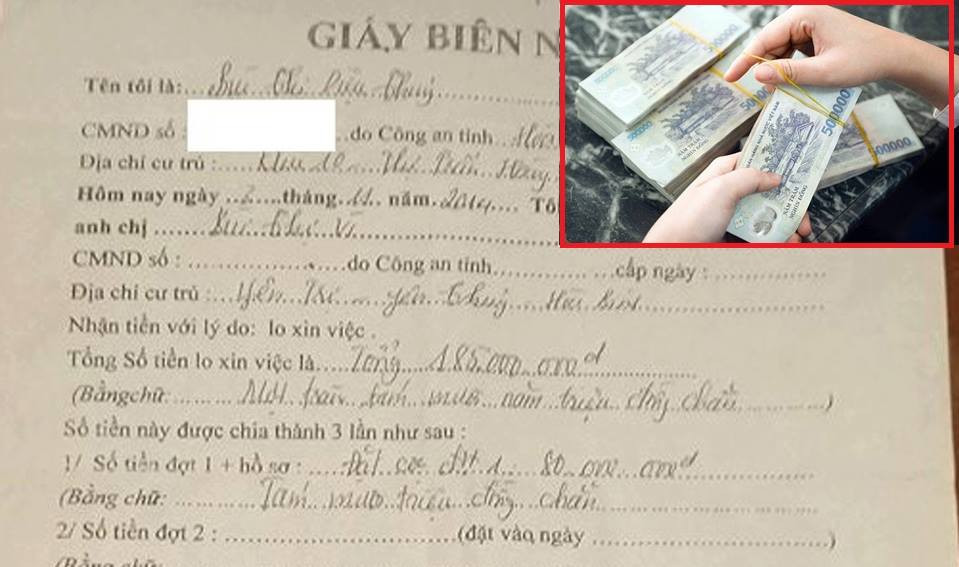 GIẤY BIÊN N
Tên tôi là:... Bùi Thị Diệu Thuý
CMND số : .do Công an tỉnh :
Địa chỉ cư trú :......
Hôm nay ngày ..2....tháng.11. năm.2014.... Tô
anh chị ....... Bùi
CMND số : .....................do Công an tỉnh............... ....cấp ngày : ..................
Địa chỉ cư trú :... Yên Trị ... Yên Thuỷ .. Hoà Bình
Nhận tiền với lý do: lo xin việc .
Tổng Số tiền lo xin việc là.... Tổng .185.000.000đ
(Bằngchữ: ...... Một trăm tám mươi năm triệu đồng chẵn ...............)
Số tiền này được chia thành 3 lần như sau :
1/ Số tiền đợt 1 + hồ sơ : .... Đặt cọc đợt 1. 80.000.000đ
(Bằng chữ: ............ Tám mươi triệu đồng chẵn
2/ Số tiền đợt 2 : .............................(đặt vào ngày ..............................)
(Bằng chữ:
500000
500000
500000
500000
NĂM TRĂM
NGHÌN ĐỒNG
NĂM TRĂM
NGHÌN ĐỒNG